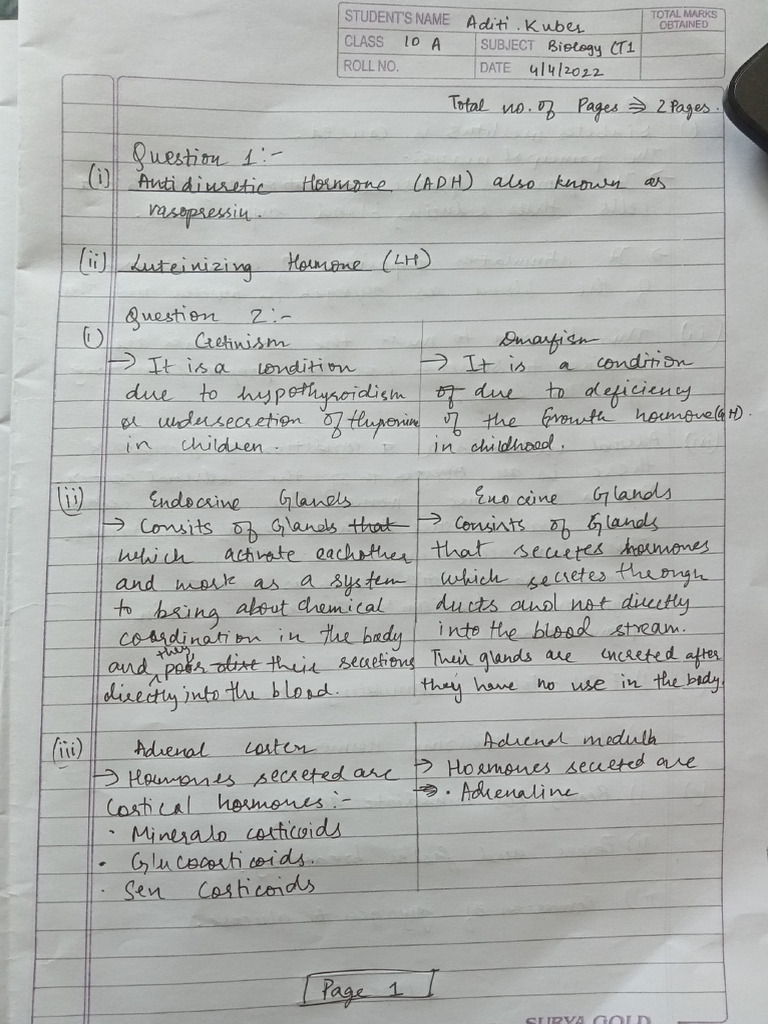 STUDENT'S NAME Aditi. Kuber
TOTAL MARKS OBTAINED
CLASS 10 A SUBJECT Biology CT1
ROLL NO. DATE 4/4/2022
Total no. of Pages ⇒ 2 Pages.
Question 1:-
(i) Antidiuretic Hormone (ADH) also known as
vasopressin.
(ii) Luteinizing Hormone (LH)
Question 2:-
(i) Cretinism
→ It is a condition
due to hypothyroidism
or undersecretion of thyroxine
in children.
Dwarfism
→ It is a condition
of due to deficiency
of the Growth hormone (GH).
in childhood.
(ii) Endocrine Glands
→ Consits of Glands that
which activate eachother
and work as a system
to bring about chemical
coordination in the body
and they poor dist their secretions
directly into the blood.
Exocrine Glands
→ Consists of Glands
that secretes hormones
which secretes through
ducts and not directly
into the blood stream.
Their glands are excreted after
they have no use in the body.
(iii) Adrenal cortex
→ Hormones secreted are
Cortical hormones:-
• Mineralo corticoids
• Glucocorticoids.
• Sex Corticoids
Adrenal medulla
→ Hormones secreted are
→ • Adrenaline
Page 1
SURYA GOLD